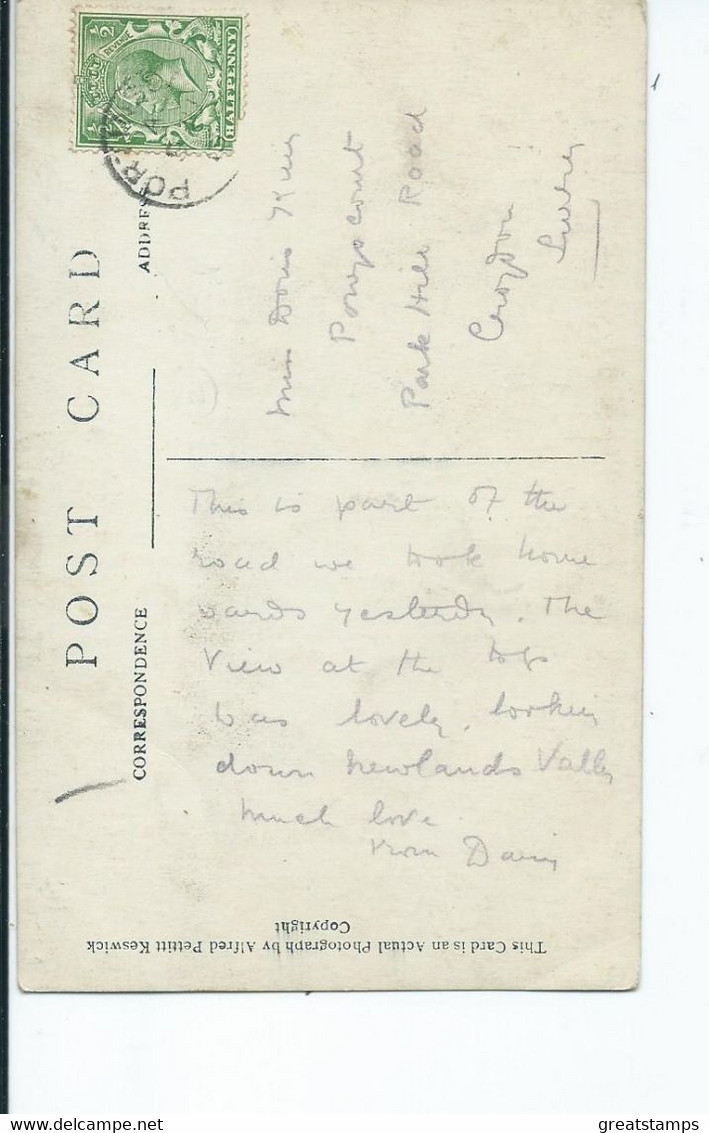 POST CARD
CORRESPONDENCE
ADDRESS
REVENUE
½
HALFPENNY
POR
This is part of the
road we took home
wards yesterdy. The
View at the top
was lovely, looking
down Newlands Valley
Much love
from
Miss Doris
Powyscourt
Park Hill Road
Croydon
Surrey
This Card is an Actual Photograph by Alfred Pettitt Keswick
Copyright
greatstamps